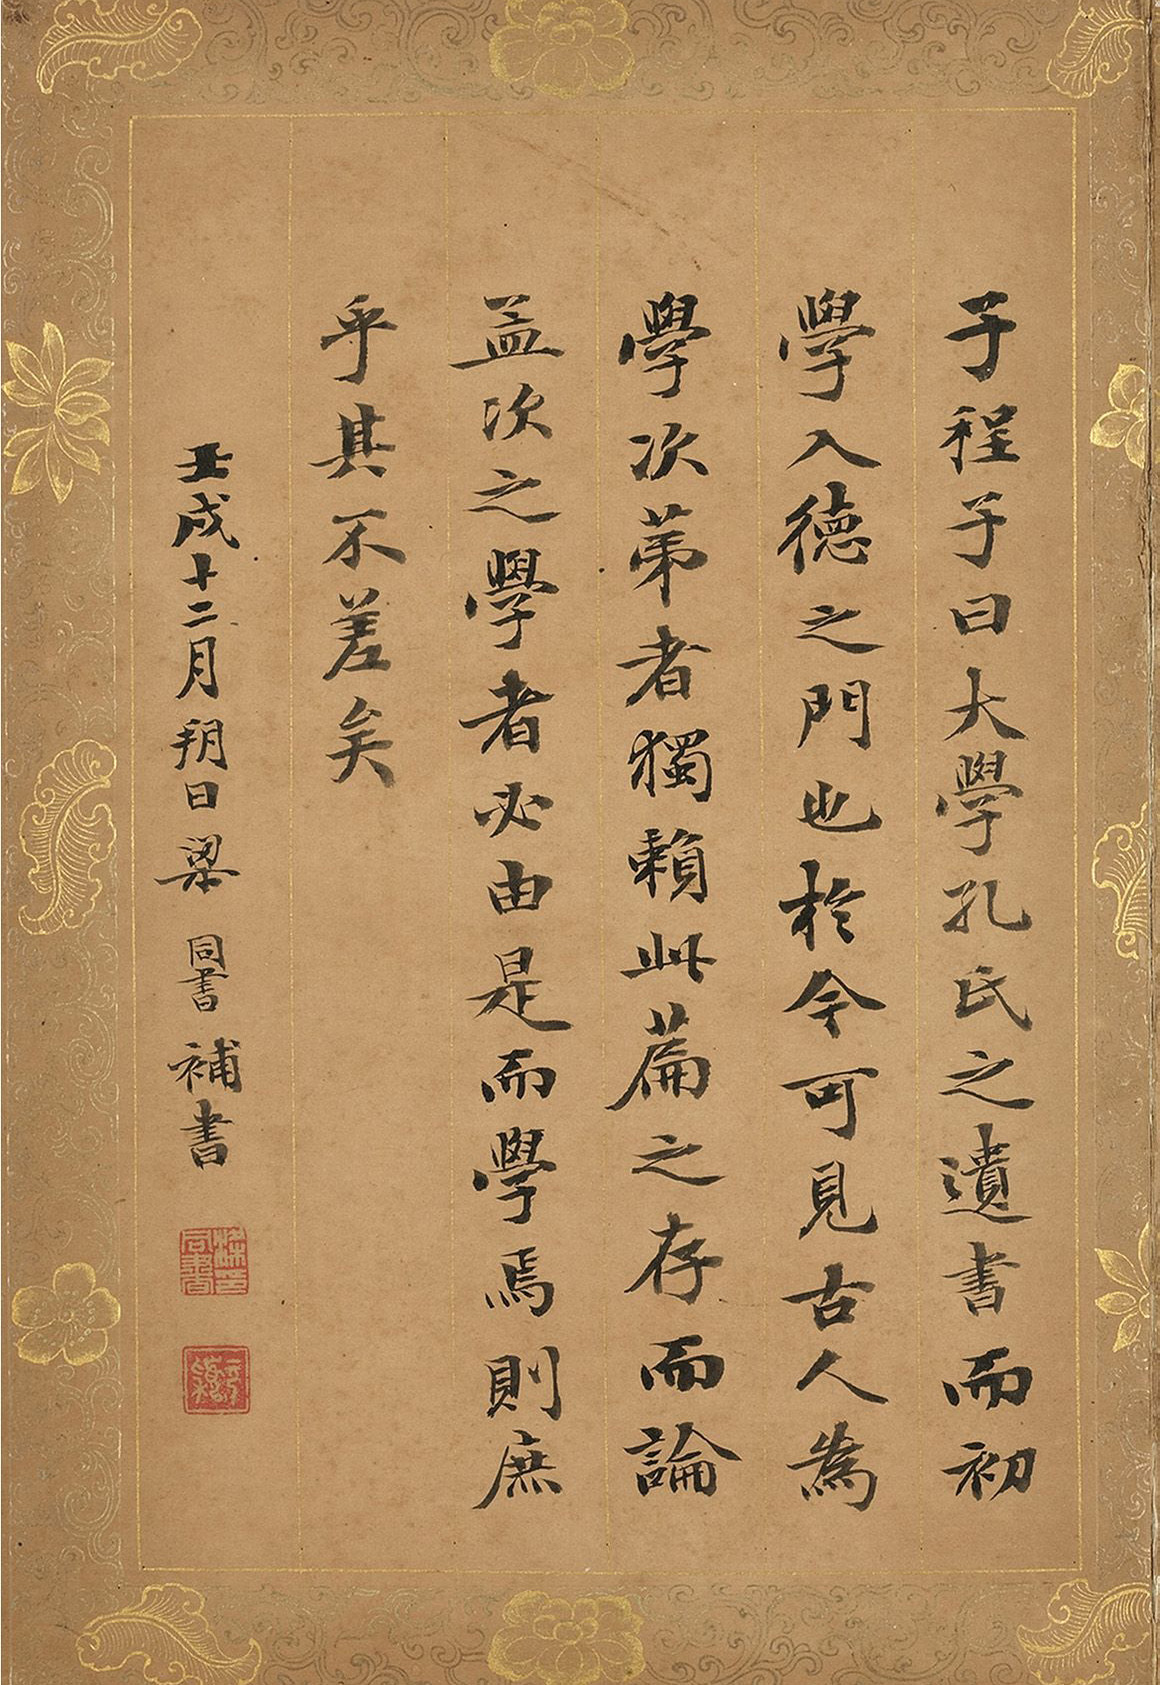 子程子曰大學孔氏之遺書而初
學入德之門也於今可見古人為
學次第者獨賴此篇之存而論
孟次之學者必由是而學焉則庶
乎其不差矣
壬戌十二月朔日梁同書補書
梁同書印